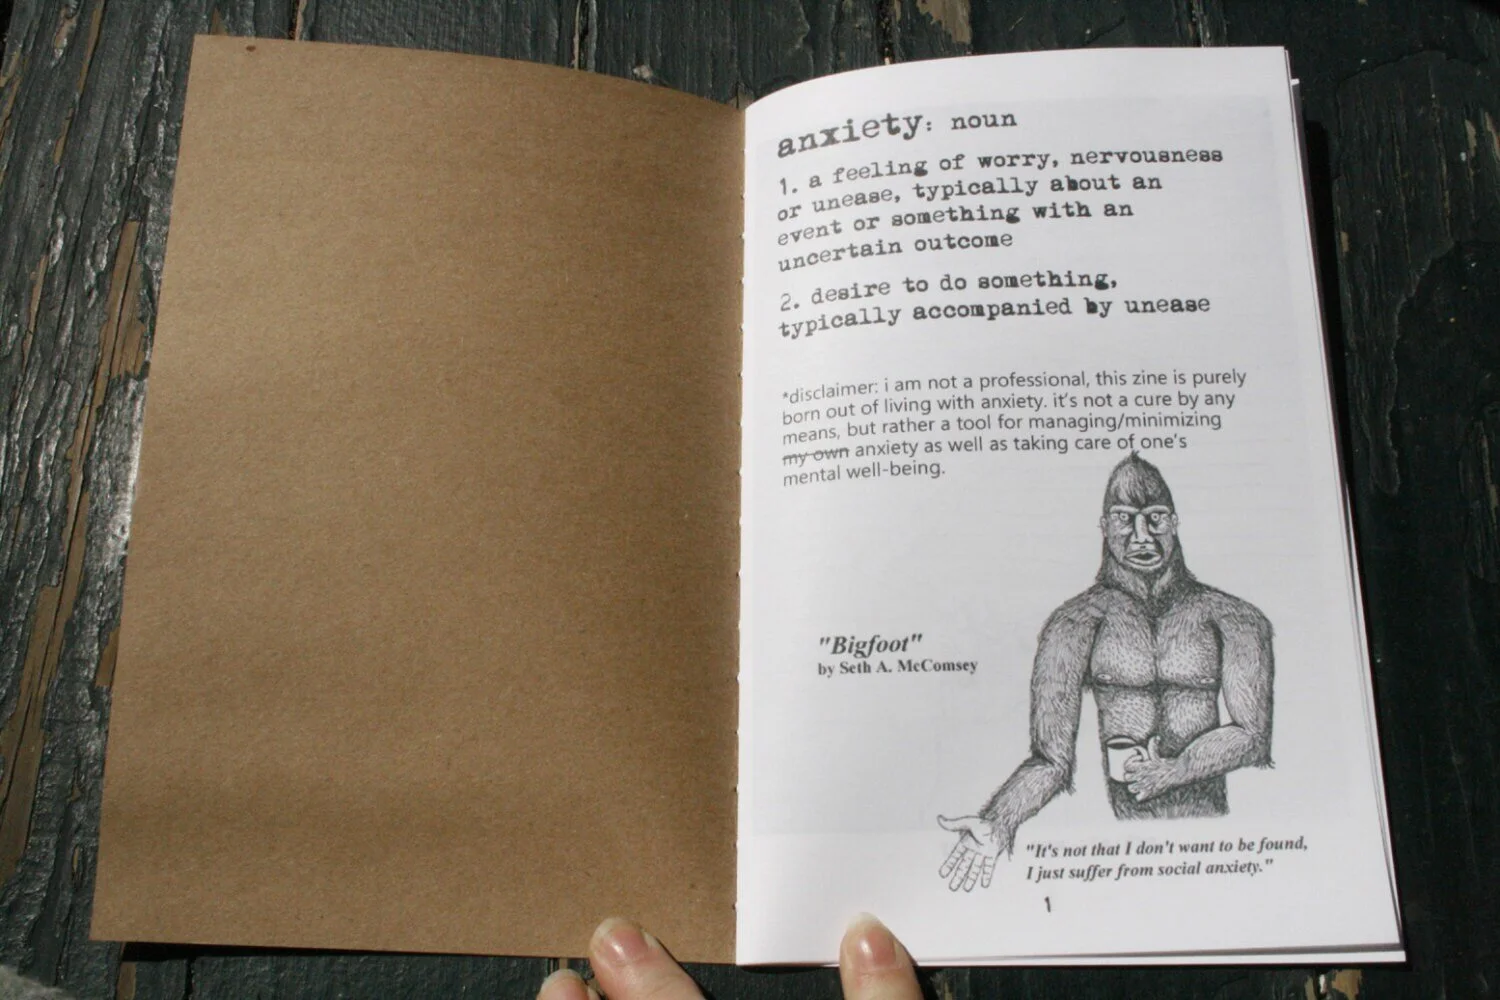 anxiety: noun
1. a feeling of worry, nervousness
or unease, typically about an
event or something with an
uncertain outcome
2. desire to do something,
typically accompanied by unease
*disclaimer: i am not a professional, this zine is purely
born out of living with anxiety. it's not a cure by any
means, but rather a tool for managing/minimizing
my own anxiety as well as taking care of one's
mental well-being.
"Bigfoot"
by Seth A. McComsey
"It's not that I don't want to be found,
I just suffer from social anxiety."
1